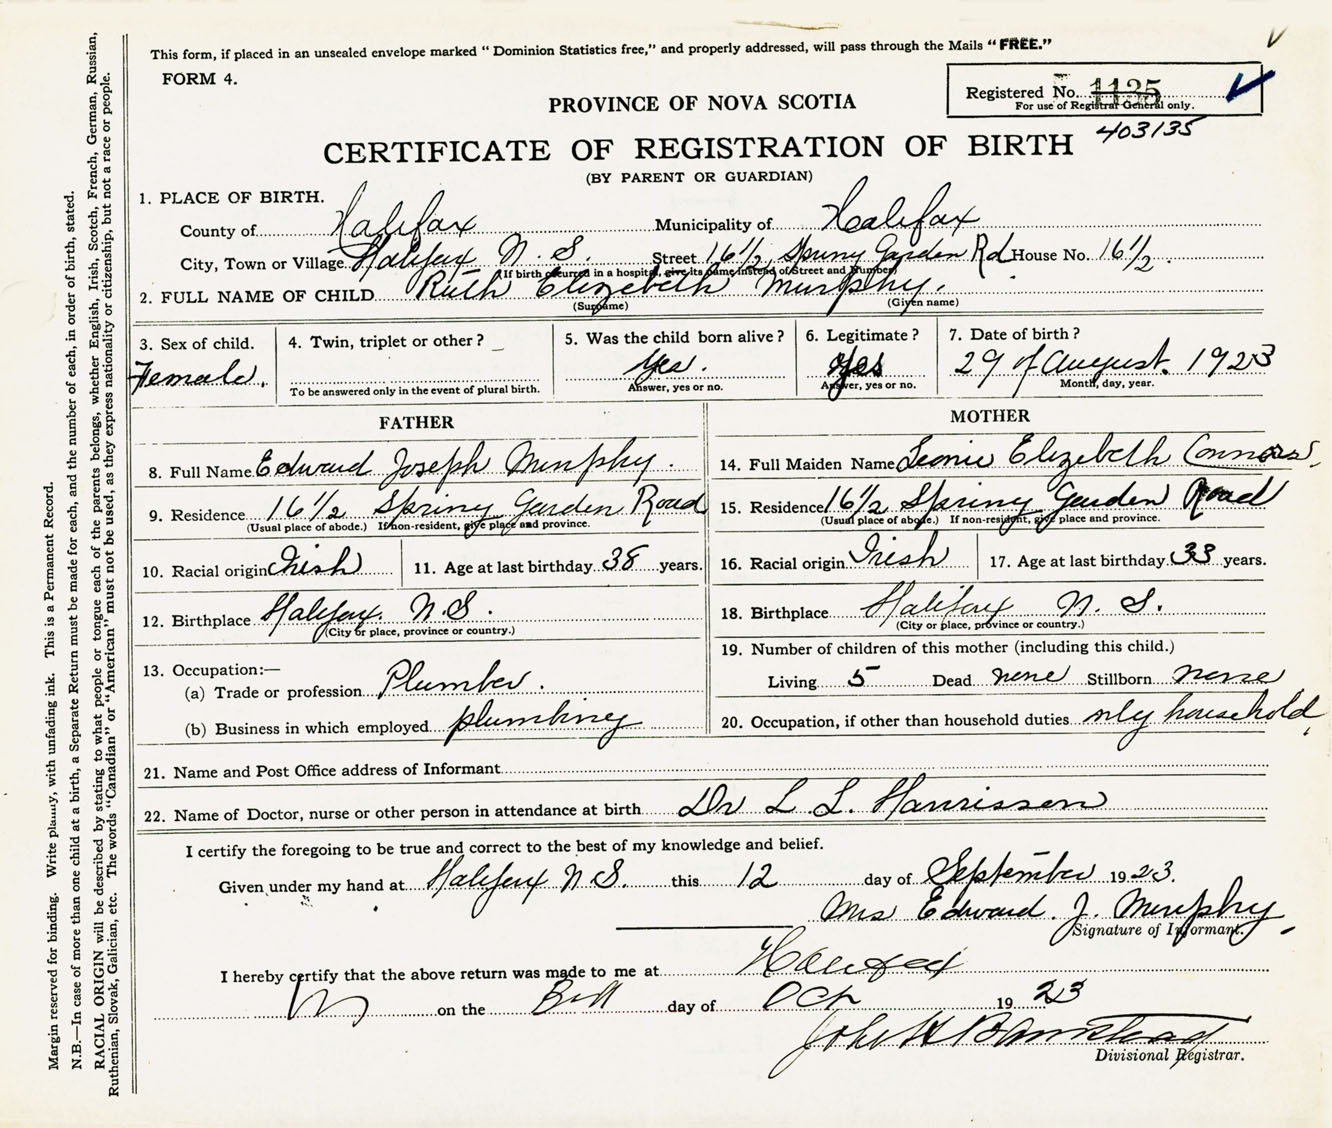 This form, if placed in an unsealed envelope marked “Dominion Statistics free,” and properly addressed, will pass through the Mails “FREE.”
FORM 4.
Registered No. 1125
For use of Registrar General only.
403135
PROVINCE OF NOVA SCOTIA
CERTIFICATE OF REGISTRATION OF BIRTH
(BY PARENT OR GUARDIAN)
1. PLACE OF BIRTH.
County of Halifax Municipality of Halifax
City, Town or Village Halifax N. S. Street 16½ Spring Garden Rd House No. 16½.
(If birth occurred in a hospital, give its name instead of Street and Number)
2. FULL NAME OF CHILD Ruth Elizebeth Murphy.
(Surname) (Given name)
3. Sex of child. 4. Twin, triplet or other? 5. Was the child born alive? 6. Legitimate? 7. Date of birth?
Female. Yes. Yes 29 of August. 1923
To be answered only in the event of plural birth. Answer, yes or no. Answer, yes or no. Month, day, year.
FATHER
8. Full Name Edward Joseph Murphy.
9. Residence 16½ Spring Garden Road
(Usual place of abode.) If non-resident, give place and province.
10. Racial origin Irish 11. Age at last birthday 38 years.
12. Birthplace Halifax. N.S.
(City or place, province or country.)
13. Occupation:—
(a) Trade or profession Plumber.
(b) Business in which employed plumbing
MOTHER
14. Full Maiden Name Leonie Elizebeth Connors.
15. Residence 16½ Spring Garden Road
(Usual place of abode.) If non-resident, give place and province.
16. Racial origin Irish 17. Age at last birthday 33 years.
18. Birthplace Halifax N. S.
(City or place, province or country.)
19. Number of children of this mother (including this child.)
Living 5 Dead none Stillborn none
20. Occupation, if other than household duties only household.
21. Name and Post Office address of Informant
22. Name of Doctor, nurse or other person in attendance at birth Dr L. L. Harrisson
I certify the foregoing to be true and correct to the best of my knowledge and belief.
Given under my hand at Halifax N.S. this 12 day of September 1923.
Mrs Edward. J. Murphy.
Signature of Informant.
I hereby certify that the above return was made to me at Halifax
on the day of Oct 1923
John H
Divisional Registrar.
Margin reserved for binding. Write plainly, with unfading ink. This is a Permanent Record.
N.B.—In case of more than one child at a birth, a Separate Return must be made for each, and the number of each, in order of birth, stated.
RACIAL ORIGIN will be described by stating to what people or tongue each of the parents belongs, whether English, Irish, Scotch, French, German, Russian,
Ruthenian, Slovak, Galician, etc. The words “Canadian” or “American” must not be used, as they express nationality or citizenship, but not a race or people.